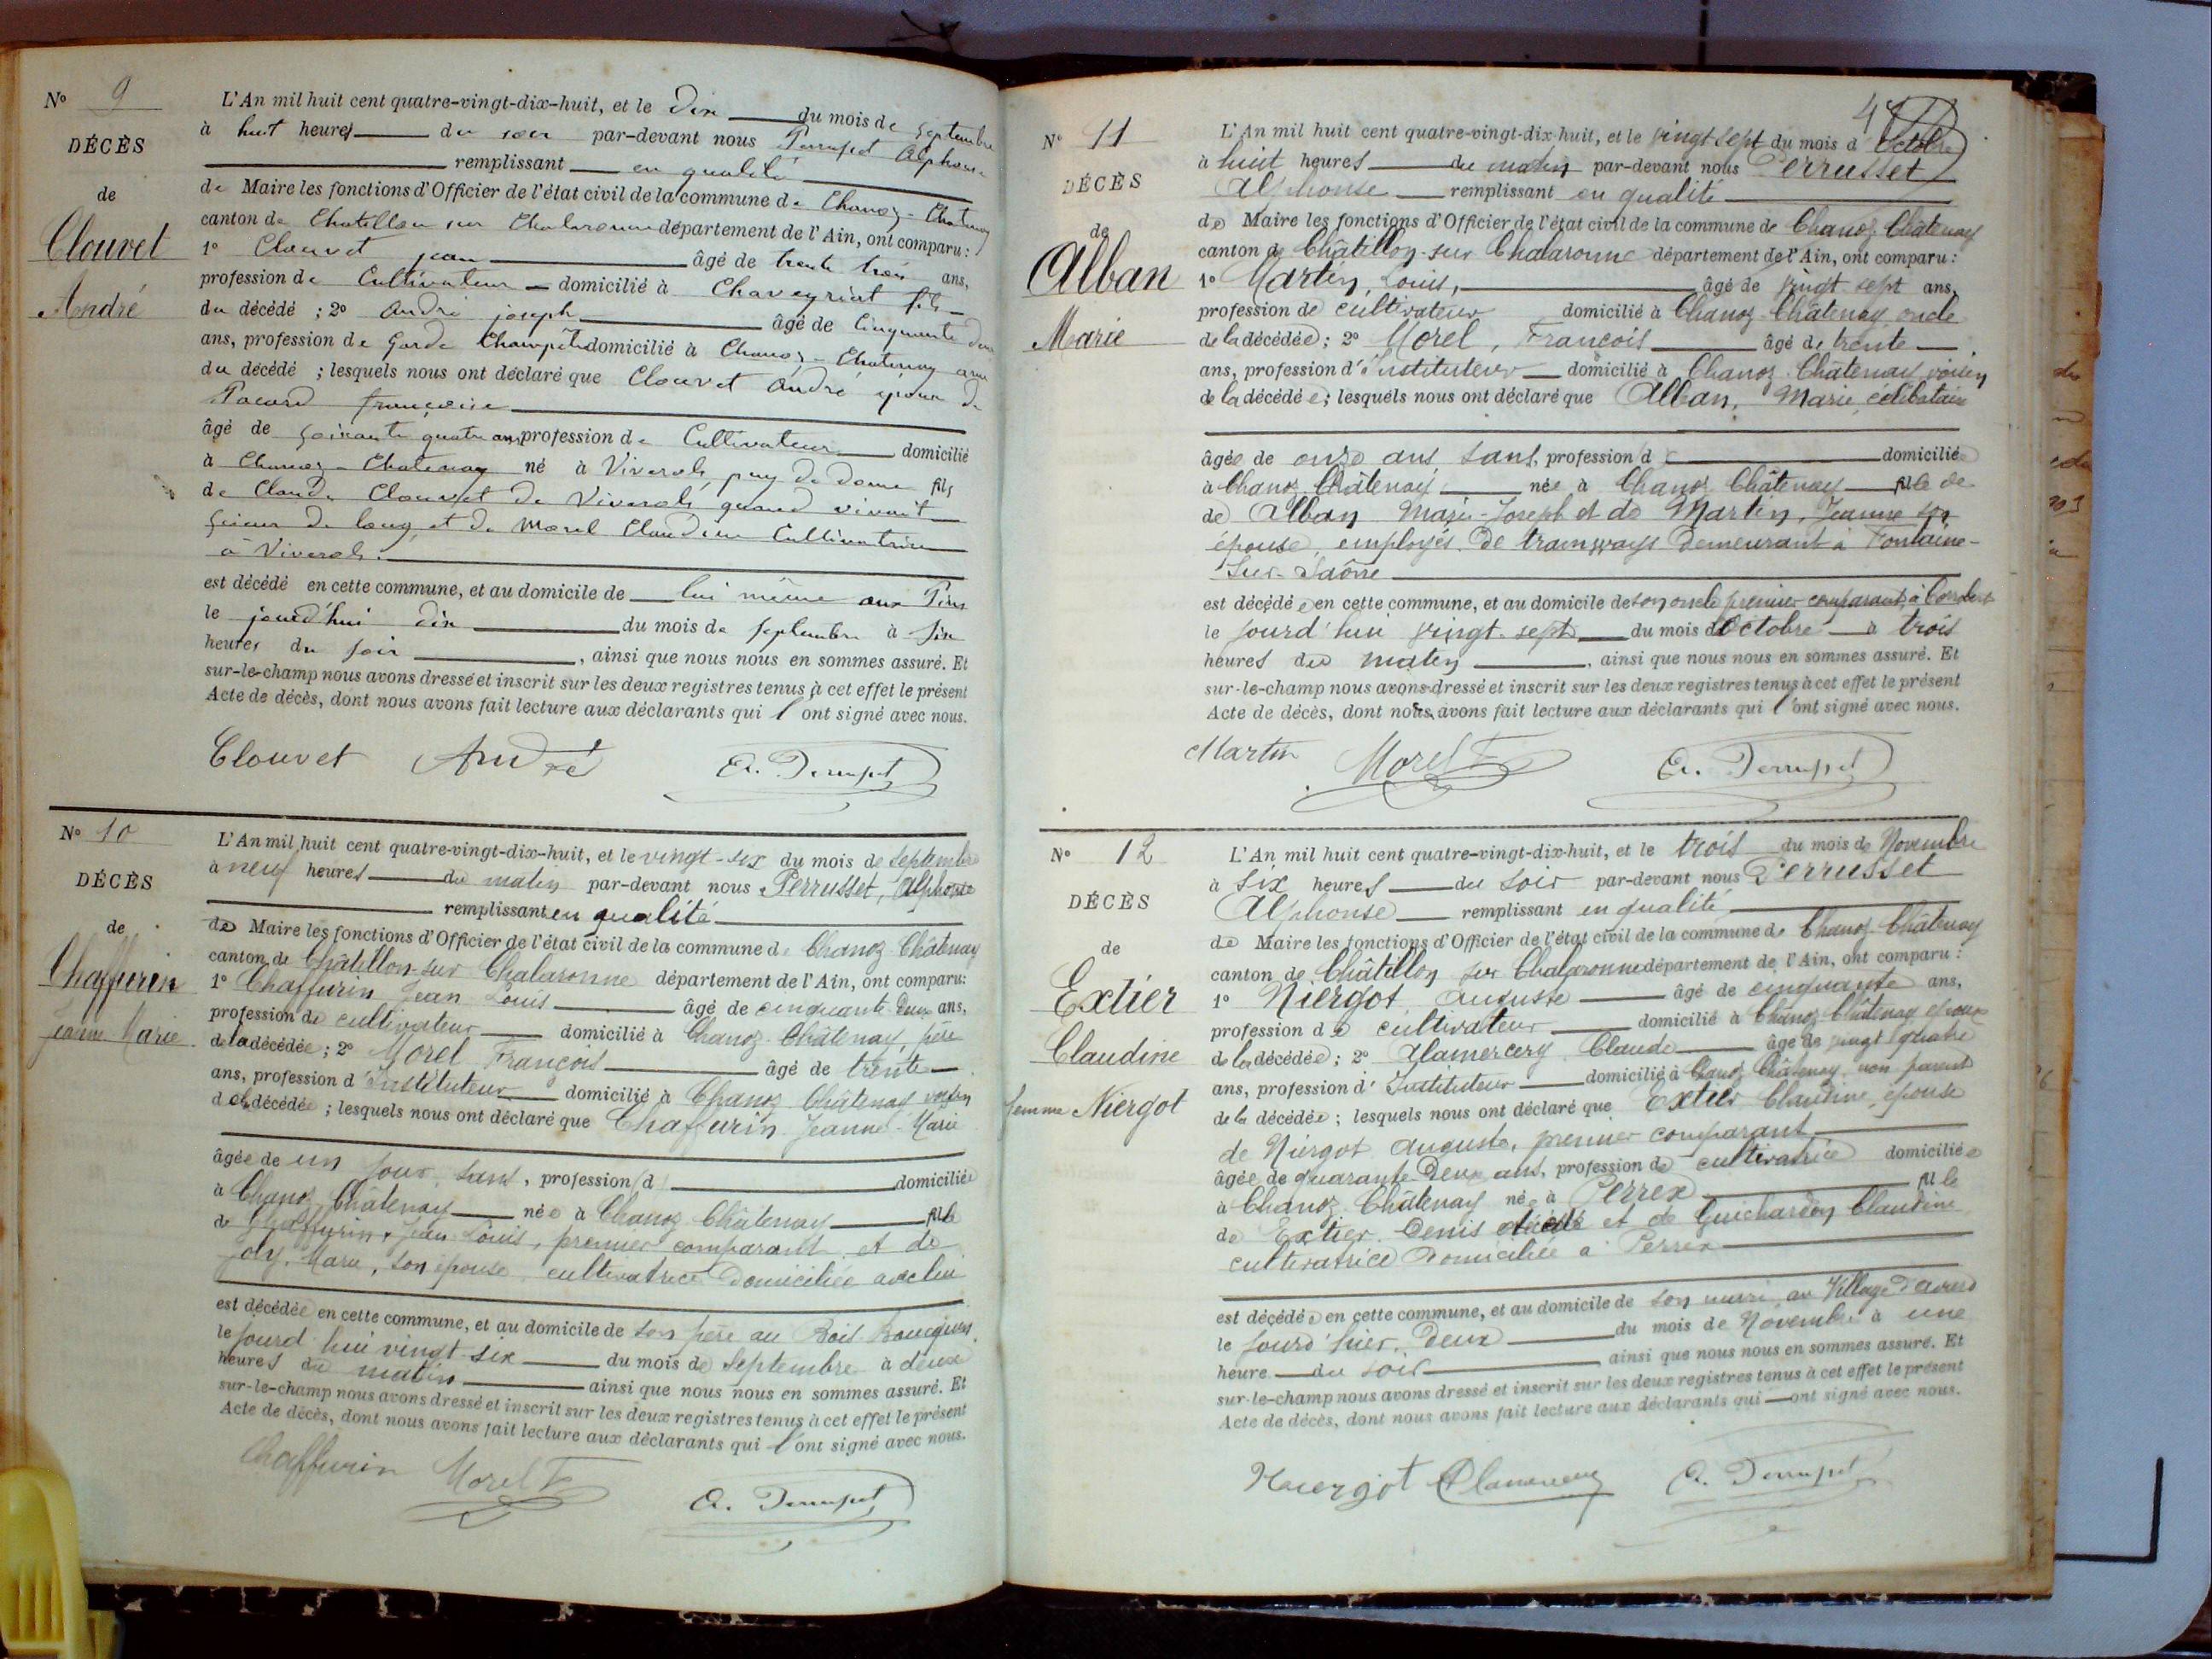 N° 9
DÉCÈS
de
Clouvet
André
L'An mil huit cent quatre-vingt-dix-huit, et le Dix du mois de Septembre
à huit heures du soir par-devant nous Perrusset Alphonse
remplissant en qualité
de Maire les fonctions d'Officier de l'état civil de la commune de Chanoz-Chatenay
canton de Chatillon sur Chalaronne département de l'Ain, ont comparu:
1° Clouvet jean âgé de trente trois ans,
profession de Cultivateur domicilié à Chaveyriat fils
du décédé ; 2° André joseph âgé de Cinquante deux
ans, profession de Garde Champêtre domicilié à Chanoz-Chatenay ami
du décédé ; lesquels nous ont déclaré que Clouvet André époux de
Pacard françoise
âgé de Soixante quatre ans, profession de Cultivateur domicilié
à Chanoz-Chatenay né à Viverols, puy de dome fils
de Claude Clouvet de Viverols quand vivait
Scieur de long et de Morel Claudine Cultivatrice
à Viverols.
est décédé en cette commune, et au domicile de lui même aux Pins
le jourd'hui dix du mois de septembre à six
heures du soir , ainsi que nous nous en sommes assuré. Et
sur-le-champ nous avons dressé et inscrit sur les deux registres tenus à cet effet le présent
Acte de décès, dont nous avons fait lecture aux déclarants qui l'ont signé avec nous.
Clouvet André A. Perrusset
N° 10
DÉCÈS
de
Chaffurin
Jeanne Marie
L'An mil huit cent quatre-vingt-dix-huit, et le vingt-six du mois de septembre
à neuf heures du matin par-devant nous Perrusset, Alphonse
remplissant en qualité
de Maire les fonctions d'Officier de l'état civil de la commune de Chanoz-Châtenay
canton de Châtillon-sur Chalaronne département de l'Ain, ont comparu:
1° Chaffurin Jean Louis âgé de cinquante deux ans,
profession de cultivateur domicilié à Chanoz-Châtenay, père
de la décédée ; 2° Morel François âgé de trente
ans, profession d'Instituteur domicilié à Chanoz Châtenay voisin
de la décédée ; lesquels nous ont déclaré que Chaffurin Jeanne-Marie
âgée de un jour, sans, profession d domiciliée
à Chanoz Châtenay née à Chanoz Châtenay fille
de Chaffurin, Jean Louis, premier comparant et de
Joly, Marie, son épouse cultivatrice domiciliée avec lui
est décédée en cette commune, et au domicile de son père au Bois Bourguin
le jourd'hui vingt-six du mois de septembre à deux
heures du matin ainsi que nous nous en sommes assuré. Et
sur-le-champ nous avons dressé et inscrit sur les deux registres tenus à cet effet le présent
Acte de décès, dont nous avons fait lecture aux déclarants qui l'ont signé avec nous.
Chaffurin Morel F A. Perrusset
N° 11
DÉCÈS
de
Alban
Marie
L'An mil huit cent quatre-vingt-dix-huit, et le vingt-sept du mois d'Octobre
à huit heures du matin par-devant nous Perrusset
Alphonse remplissant en qualité
de Maire les fonctions d'Officier de l'état civil de la commune de Chanoz Châtenay
canton de Châtillon-sur Chalaronne département de l'Ain, ont comparu:
1° Martin, Louis, âgé de vingt sept ans,
profession de cultivateur domicilié à Chanoz-Châtenay, oncle
de la décédée ; 2° Morel, François âgé de trente
ans, profession d'instituteur domicilié à Chanoz-Châtenay voisin
de la décédée ; lesquels nous ont déclaré que Alban, Marie, célibataire
âgée de onze ans sans, profession d domiciliée
à Chanoz Châtenay née à Chanoz Châtenay fille de
de Alban Marie-Joseph et de Martin, Jeanne son
épouse employés de tramways demeurant à Fontaine-
sur-Saône
est décédée en cette commune, et au domicile de son oncle premier comparant, à
le jourd'hui vingt-sept du mois d'Octobre à trois
heures du matin , ainsi que nous nous en sommes assuré. Et
sur-le-champ nous avons dressé et inscrit sur les deux registres tenus à cet effet le présent
Acte de décès, dont nous avons fait lecture aux déclarants qui l'ont signé avec nous.
Martin Morel F A. Perrusset
N° 12
DÉCÈS
de
Extier
Claudine
femme Niergot
L'An mil huit cent quatre-vingt-dix-huit, et le trois du mois de Novembre
à six heures du soir par-devant nous Perrusset
Alphonse remplissant en qualité
de Maire les fonctions d'Officier de l'état civil de la commune de Chanoz-Châtenay
canton de Châtillon sur Chalaronne département de l'Ain, ont comparu:
1° Niergot, Auguste âgé de cinquante ans,
profession de cultivateur domicilié à Chanoz-Châtenay époux
de la décédée ; 2° Alamercery Claude âgé de vingt quatre
ans, profession d'Instituteur domicilié à Chanoz Châtenay non parent
de la décédée ; lesquels nous ont déclaré que Extier Claudine, épouse
de Niergot Auguste, premier comparant
âgée de quarante deux ans, profession de cultivatrice domiciliée
à Chanoz Châtenay née à Perrex fille
de Extier Denis décédé et de Guichardon Claudine
cultivatrice domiciliée à Perrex
est décédée en cette commune, et au domicile de son mari au Village
le jourd'hier, deux du mois de Novembre à une
heure du soir ainsi que nous nous en sommes assuré. Et
sur-le-champ nous avons dressé et inscrit sur les deux registres tenus à cet effet le présent
Acte de décès, dont nous avons fait lecture aux déclarants qui ont signé avec nous.
Niergot Alamercery A. Perrusset